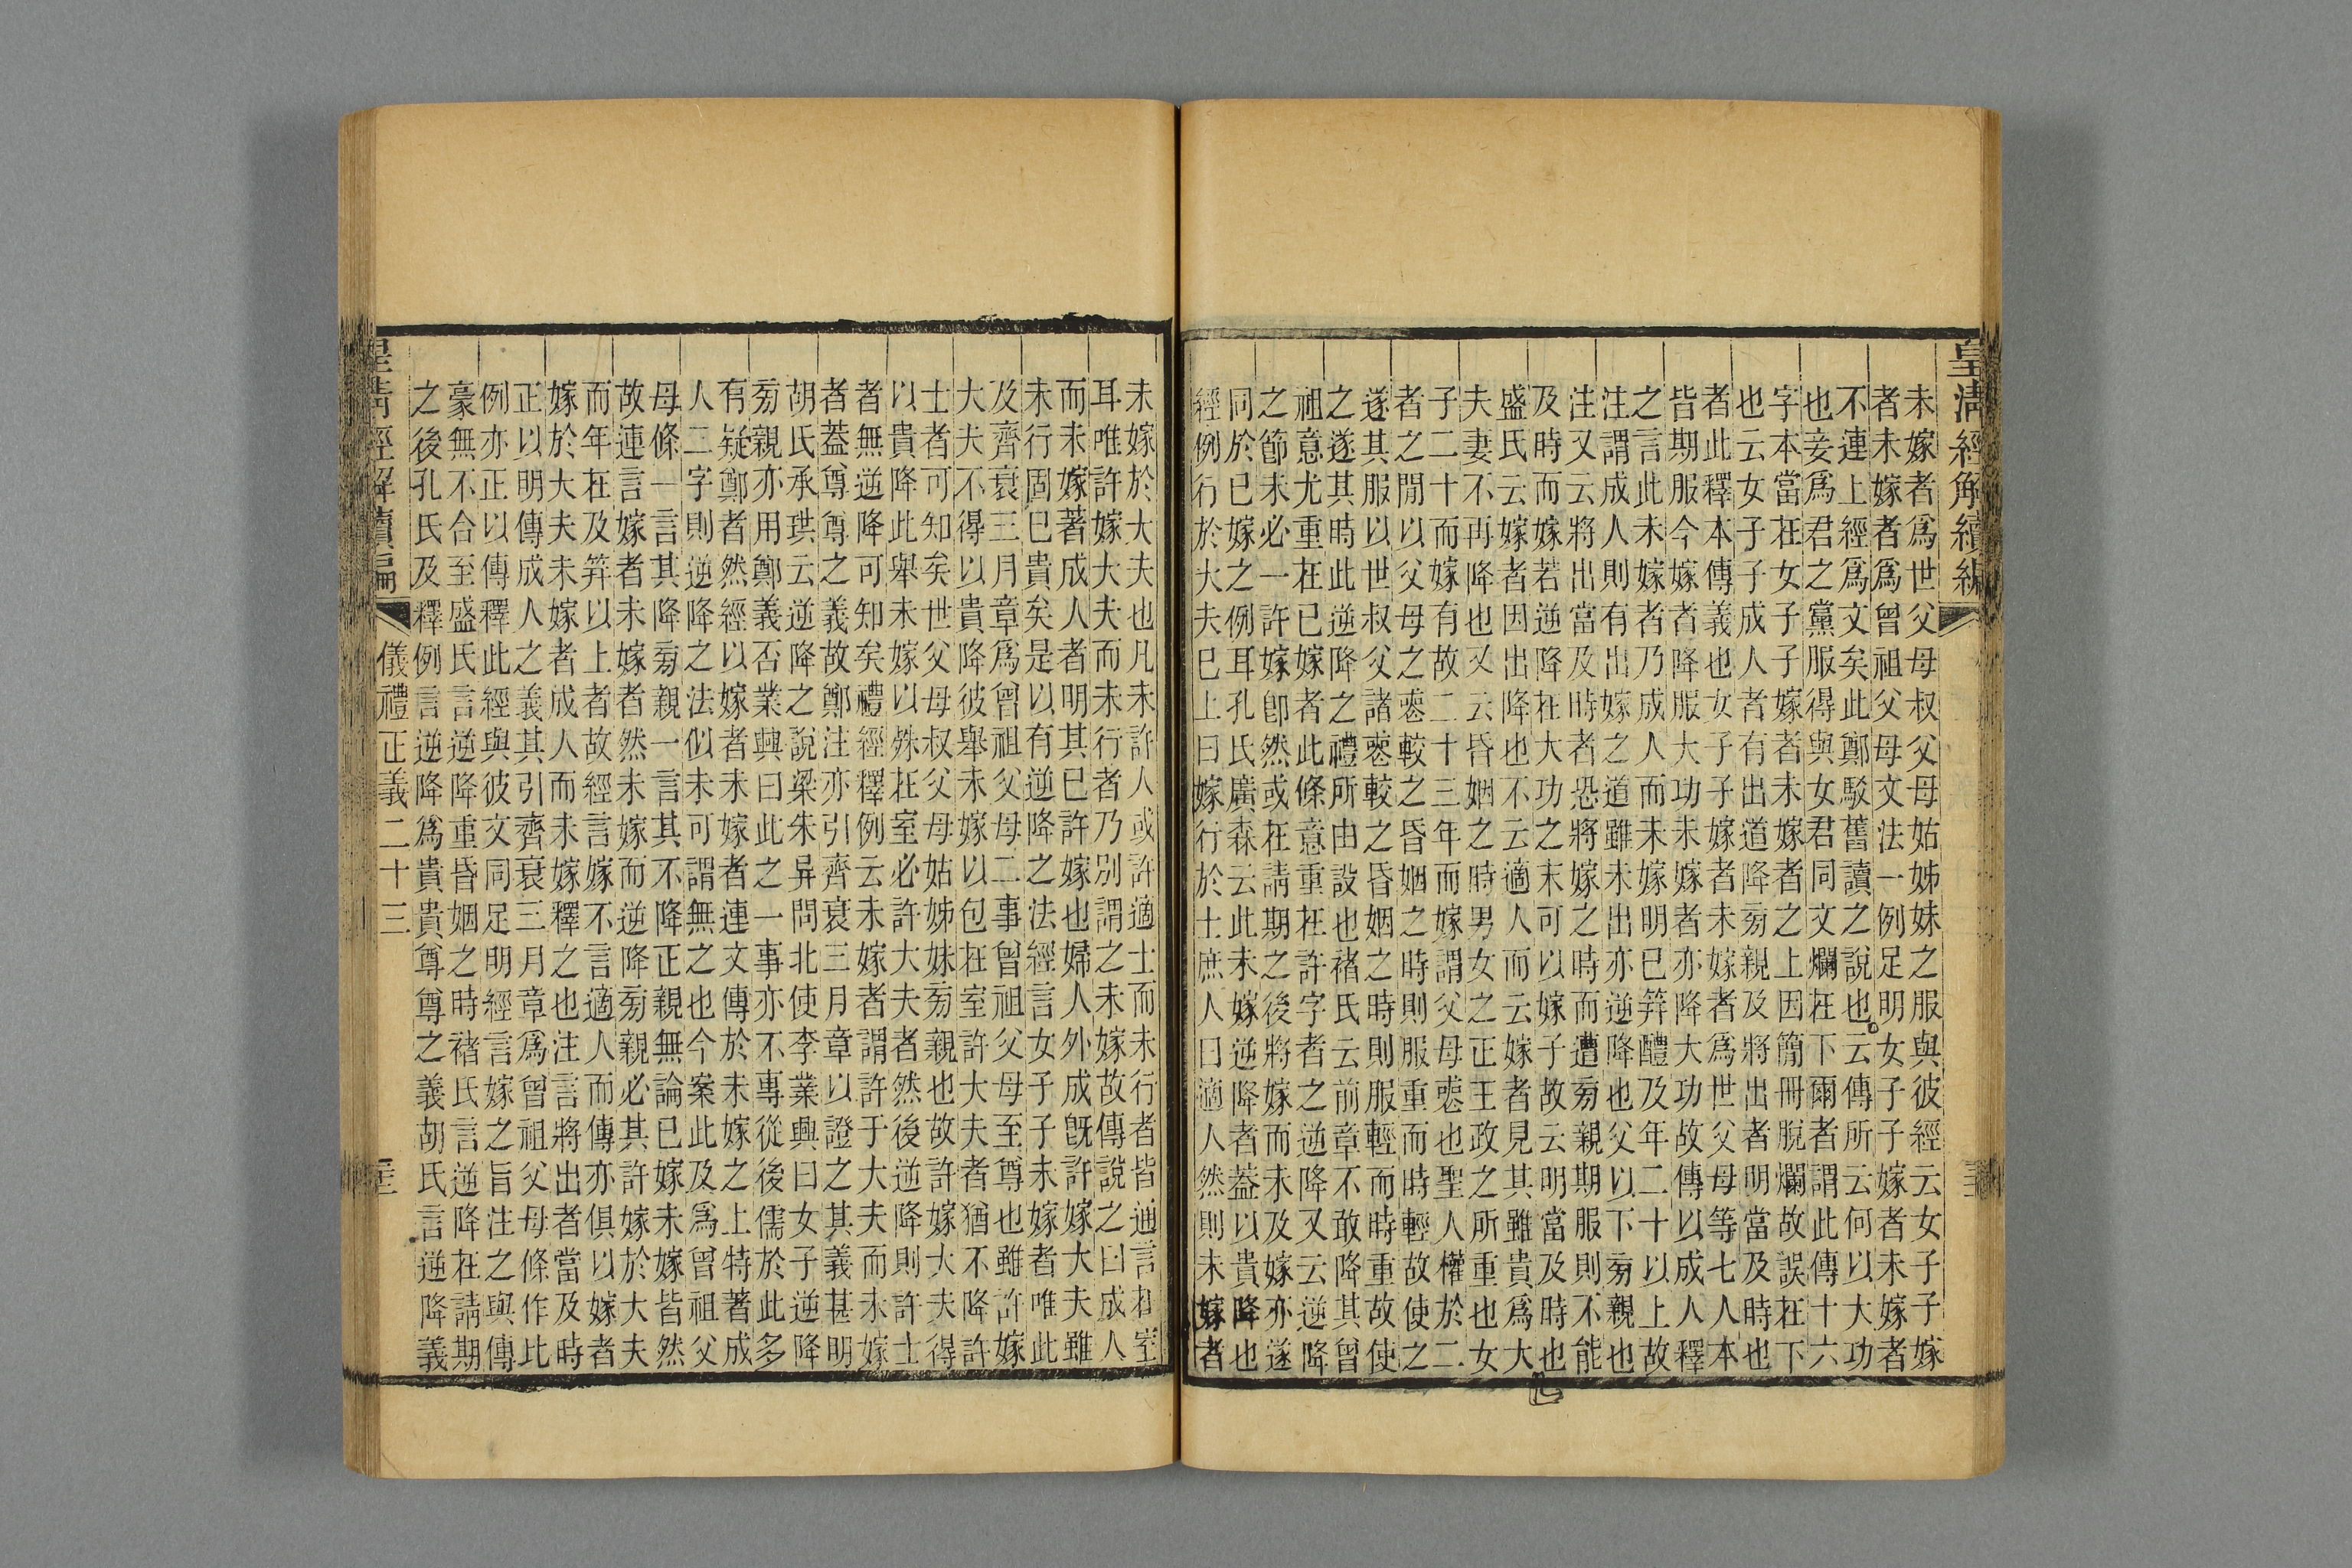 皇清經解續編
未嫁者爲世父母叔父母姑姊妹之服與彼經云女子子嫁
者未嫁者爲曾祖父母文法一例足明女子子嫁者未嫁者
不連上經爲文矣此鄭駁舊讀之說也云傳所云何以大功
也妾爲君之黨服得與女君同文爛在下爾者謂此傳十六
字本當在女子子嫁者未嫁者之上因簡冊脫爛故誤在下
也云女子子成人者有出道降旁親及將出者明當及時也
者此釋本傳義也女子子嫁者未嫁者爲世父母等七人本
皆期服今嫁者降服大功未嫁者亦降大功故傳以成人釋
之言此未嫁者乃成人而未嫁明已筓醴及年二十以上故
注謂成人則有出嫁之道雖未出亦逆降也父以下旁親也
注又云將出當及時者恐將嫁之時而遭旁親期服則不能
及時而嫁若逆降在大功之末可以嫁子故云明當及時也
盛氏云嫁者因出降也不云適人而云嫁者見其雖貴爲大
夫妻不再降也又云昏姻之時男女之正王政之所重也女
子二十而嫁有故二十三年而嫁謂父母喪也聖人權於二
者之閒以父母之喪較之昏姻之時則服重而時輕故使之
遂其服以世叔父諸喪較之昏姻之時則服輕而時重故使
之遂其時此逆降之禮所由設也褚氏云前章不敢降其曾
祖意尤重在已嫁者此條意重在許字者之逆降又云逆降
之節未必一許嫁卽然或在請期之後將嫁而未及嫁亦遂
同於已嫁之例耳孔氏廣森云此未嫁逆降者蓋以貴降也
經例行於大夫已上曰嫁行於士庶人曰適人然則未嫁者
未嫁於大夫也凡未許人或許適士而未行者皆通言在室
耳唯許嫁大夫而未行者乃別謂之未嫁故傳說之曰成人
而未嫁著成人者明其已許嫁也婦人外成旣許嫁大夫雖
未行固已貴矣是以有逆降之法經言女子子未嫁者唯此
及齊衰三月章爲曾祖父母二事曾祖父母至尊也雖許嫁
大夫不得以貴降彼舉未嫁以包在室許大夫者猶不降許
士者可知矣世父母叔父母姑姊妹旁親也故許嫁大夫得
以貴降此舉未嫁以殊在室必許大夫者然後逆降則許士
者無逆降可知矣禮經釋例云未嫁者謂許于大夫而未嫁
者蓋尊尊之義故鄭注亦引齊衰三月章以證之其義甚明
胡氏承珙云逆降之說梁朱异問北使李業興曰女子逆降
旁親亦用鄭義否業興曰此之一事亦不專從後儒於此多
有疑鄭者然經以嫁者未嫁者連文傳於未嫁之上特著成
人二字則逆降之法似未可謂無之也今案此及爲曾祖父
母條一言其降旁親一言其不降正親無論已嫁未嫁皆然
故連言嫁者未嫁者然未嫁而逆降旁親必其許嫁於大夫
而年在及筓以上者故經言嫁不言適人而傳亦俱以嫁者
嫁於大夫未嫁者成人而未嫁釋之也注言將出者當及時
正以明傳成人之義其引齊衰三月章爲曾祖父母條作此
例亦正以傳釋此經與彼文同足明經言嫁之旨注之與傳
豪無不合至盛氏言逆降重昏姻之時褚氏言逆降在請期
之後孔氏及釋例言逆降爲貴貴尊尊之義胡氏言逆降義
皇清經解續編 儀禮正義二十三